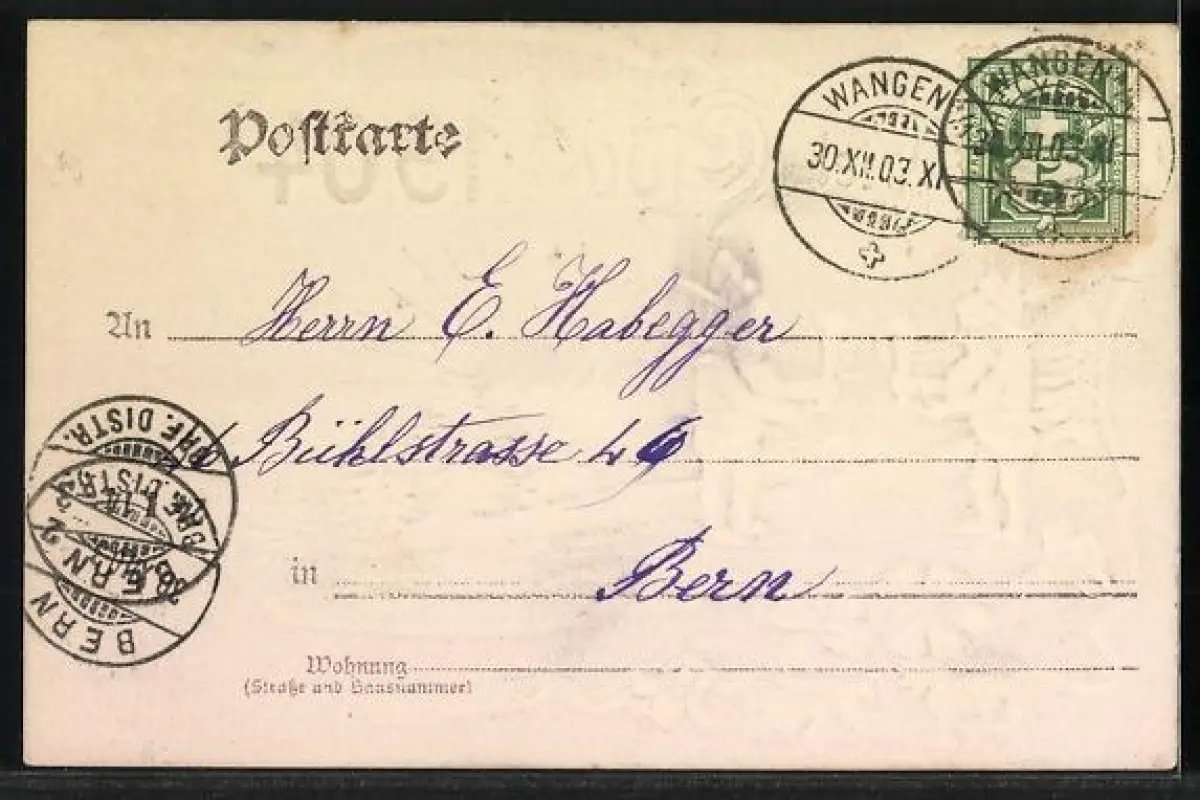 Postkarte
WANGEN
30.XII.03.XI
WANGEN
5
An Herrn E. Habegger
Bühlstrasse 49
in Bern
Wohnung
(Straße und Hausnummer)
BRF. DISTR.
BERN
BRF. DISTR.
BERN
1904